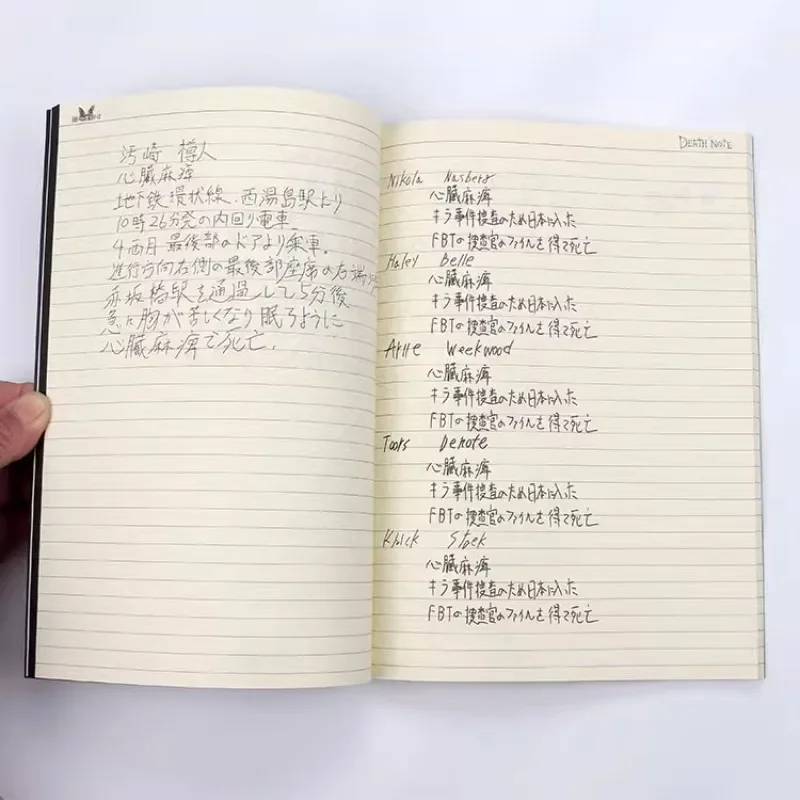 汚崎 樽人
心臓麻痺
地下鉄環状線.西湯島駅より
10時26分発の内回り電車.
4両目最後部のドアより乗車.
進行方向右側の最後部座席の右端
赤坂橋駅を通過して5分後
急に胸が苦しくなり眠ろように
心臓麻痺で死亡.
DEATH NOTE
Nikola Nasberg
心臓麻痺
キラ事件捜査のため日本に入った
FBTの捜査官のファイルを得て死亡
Haley Belle
心臓麻痺
キラ事件捜査のため日本に入った
FBTの捜査官のファイルを得て死亡
Arire Weekwood
心臓麻痺
キラ事件捜査のため日本に入った
FBTの捜査官のファイルを得て死亡
Toors Denote
心臓麻痺
キラ事件捜査のため日本に入った
FBTの捜査官のファイルを得て死亡
Knick Staek
心臓麻痺
キラ事件捜査のため日本に入った
FBTの捜査官のファイルを得て死亡